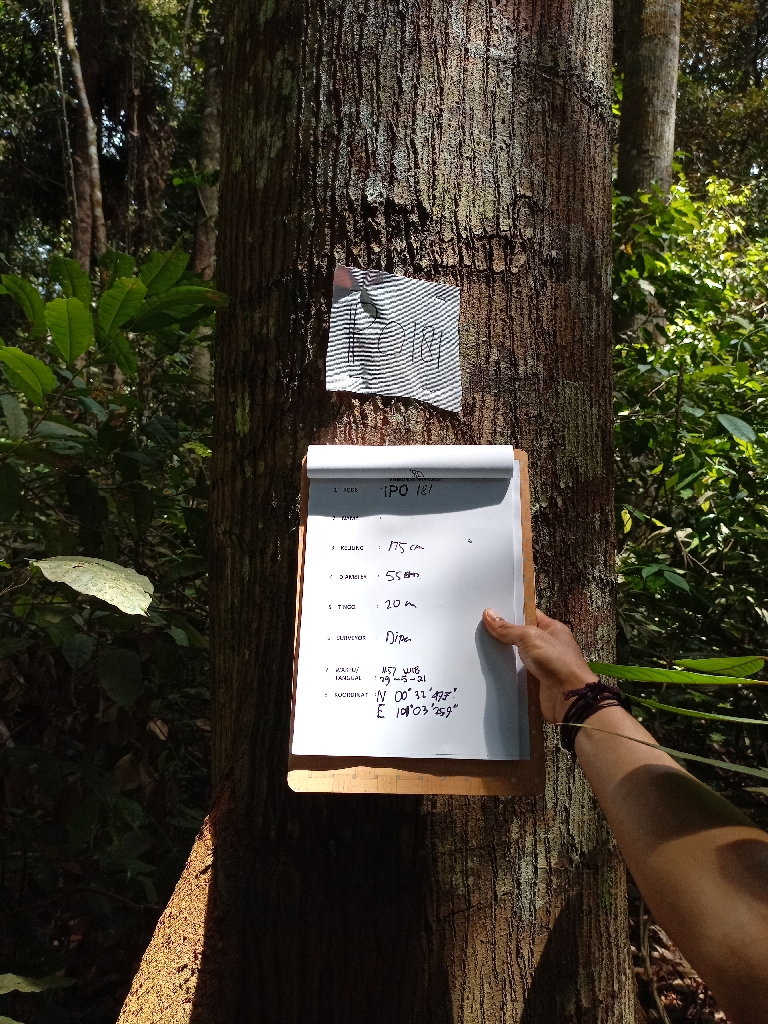 IPO 181
1 KODE : IPO 181
2 NAMA :
3 KELILING : 175 cm
4 DIAMETER : 55 cm
5 TINGGI : 20 m
6 SURVEYOR : Dipa
7 WAKTU/ TANGGAL : 1157 WIB
29-5-21
8 KOORDINAT : N 00° 32' 497"
E 101° 03' 259"